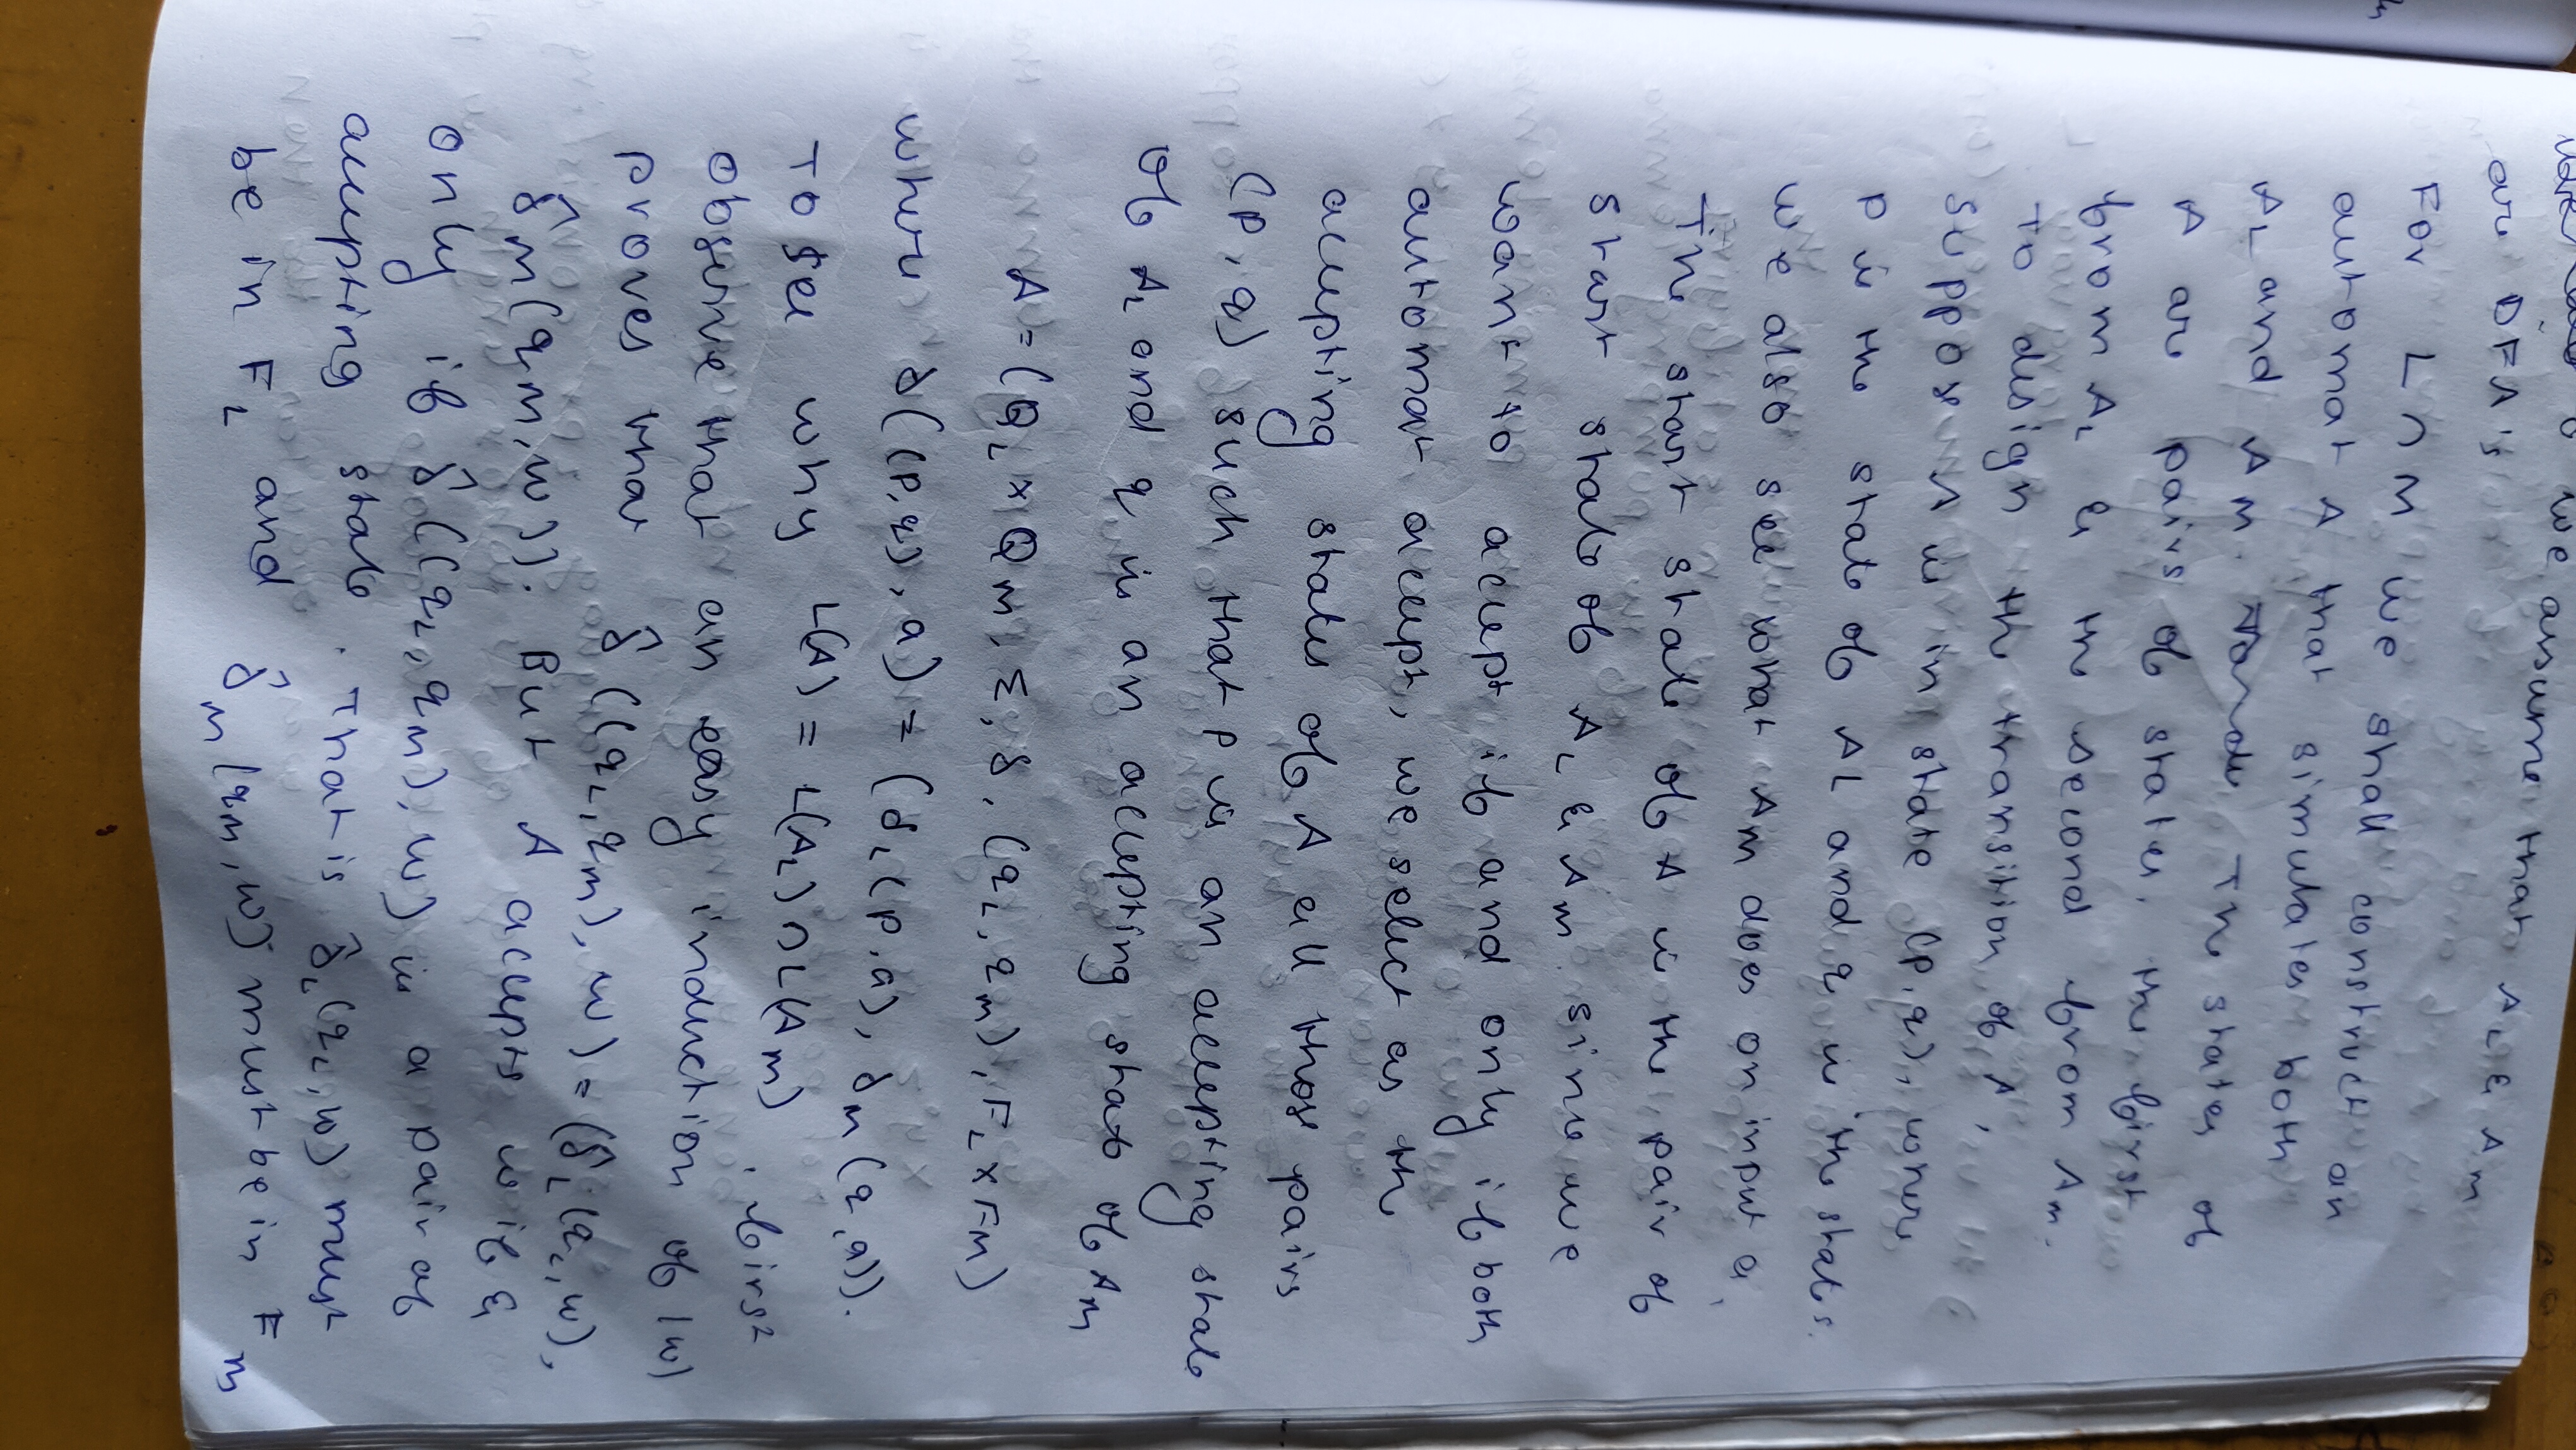 we assume that A_L & A_M
are DFA's
For L ∩ M we shall construct an
automat A that simulates both
A_L and A_M. The states of
A are pairs of states, the first
from A_L & the second from A_M.
To design the transition of A,
suppose A is in state (p, q), where
P is the state of AL and q is the states.
we also see what A_M does on input a,
The start state of A is the pair of
start state of A_L & A_M. since we
want to accept if and only if both
automat accept, we select as the
accepting states of A all those pairs
(P, q) such that P is an accepting state
of A_L and q is an accepting state of A_M
A = (Q_L × Q_M, Σ, δ, (q_L, q_M), F_L × F_M)
where δ((P, q), a) = (δ_L(P, a), δ_M(q, a)).
To see why L(A) = L(A_L) ∩ L(A_M), first
observe that an easy induction of |w|
proves that δ̂((q_L, q_M), w) = (δ̂_L(q_L, w),
δ̂_M(q_M, w)). But A accepts w if &
only if δ̂((q_L, q_M), w) is a pair of
accepting state. That is δ̂_L(q_L, w) must
be in F_L and δ̂_M(q_M, w) must be in F_M